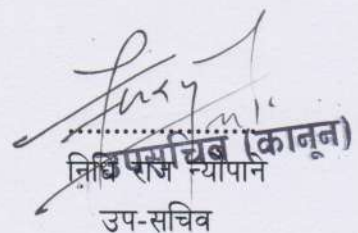 ....................
उपसचिव (कानून)
निधि राज न्यौपाने
उप-सचिव